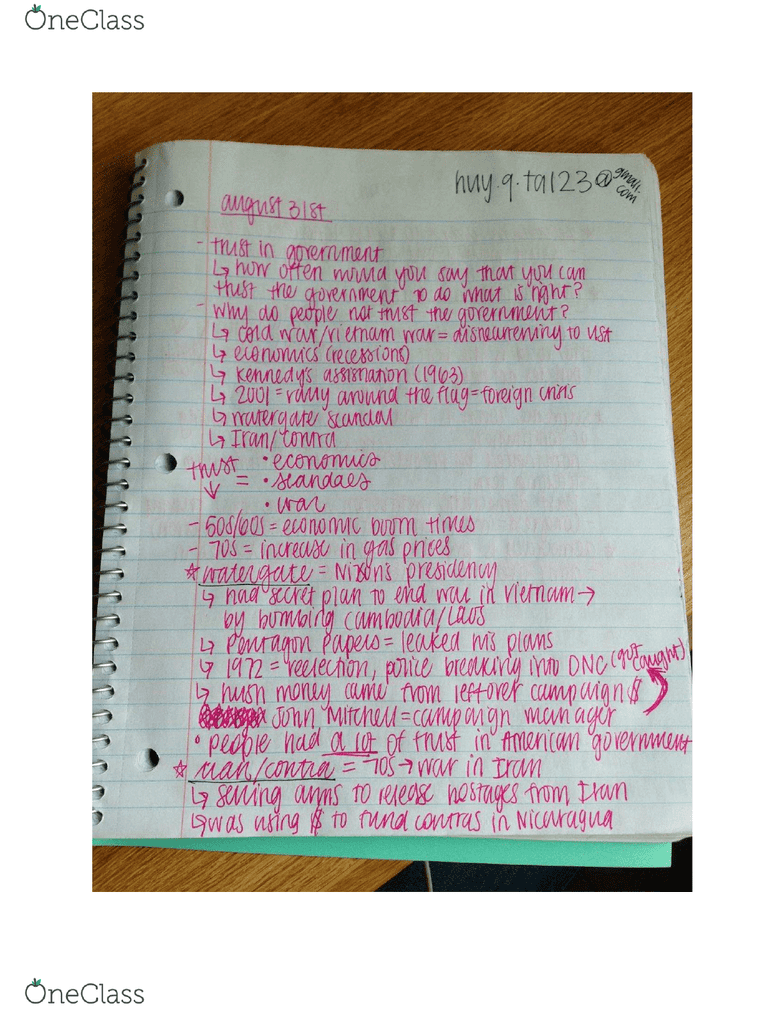 OneClass
huy.q.ta123@gmail.com
august 31st
- trust in government
↳ how often would you say that you can
trust the government to do what is right?
- why do people not trust the government?
↳ cold war/vietnam war = disheartening to ust
↳ economics (recessions)
↳ Kennedy's assination (1963)
↳ 2001 = rally around the flag = foreign crisis
↳ watergate scandal
↳ Iran/contra
trust ↓ = • economics
• scandals
• war
- 50s/60s = economic boom times
- 70s = increase in gas prices
☆ watergate = Nixon's presidency
↳ had secret plan to end war in vietnam →
by bombing cambodia/Laos
↳ Pentagon Papers = leaked his plans
↳ 1972 = reelection, police breaking into DNC (got caught)
↳ hush money came from leftover campaign $
John Mitchell = campaign manager
• people had a lot of trust in American government
☆ Iran/contra = 70s → war in Iran
↳ selling arms to release hostages from Iran
↳ was using $ to fund contras in Nicaragua
OneClass